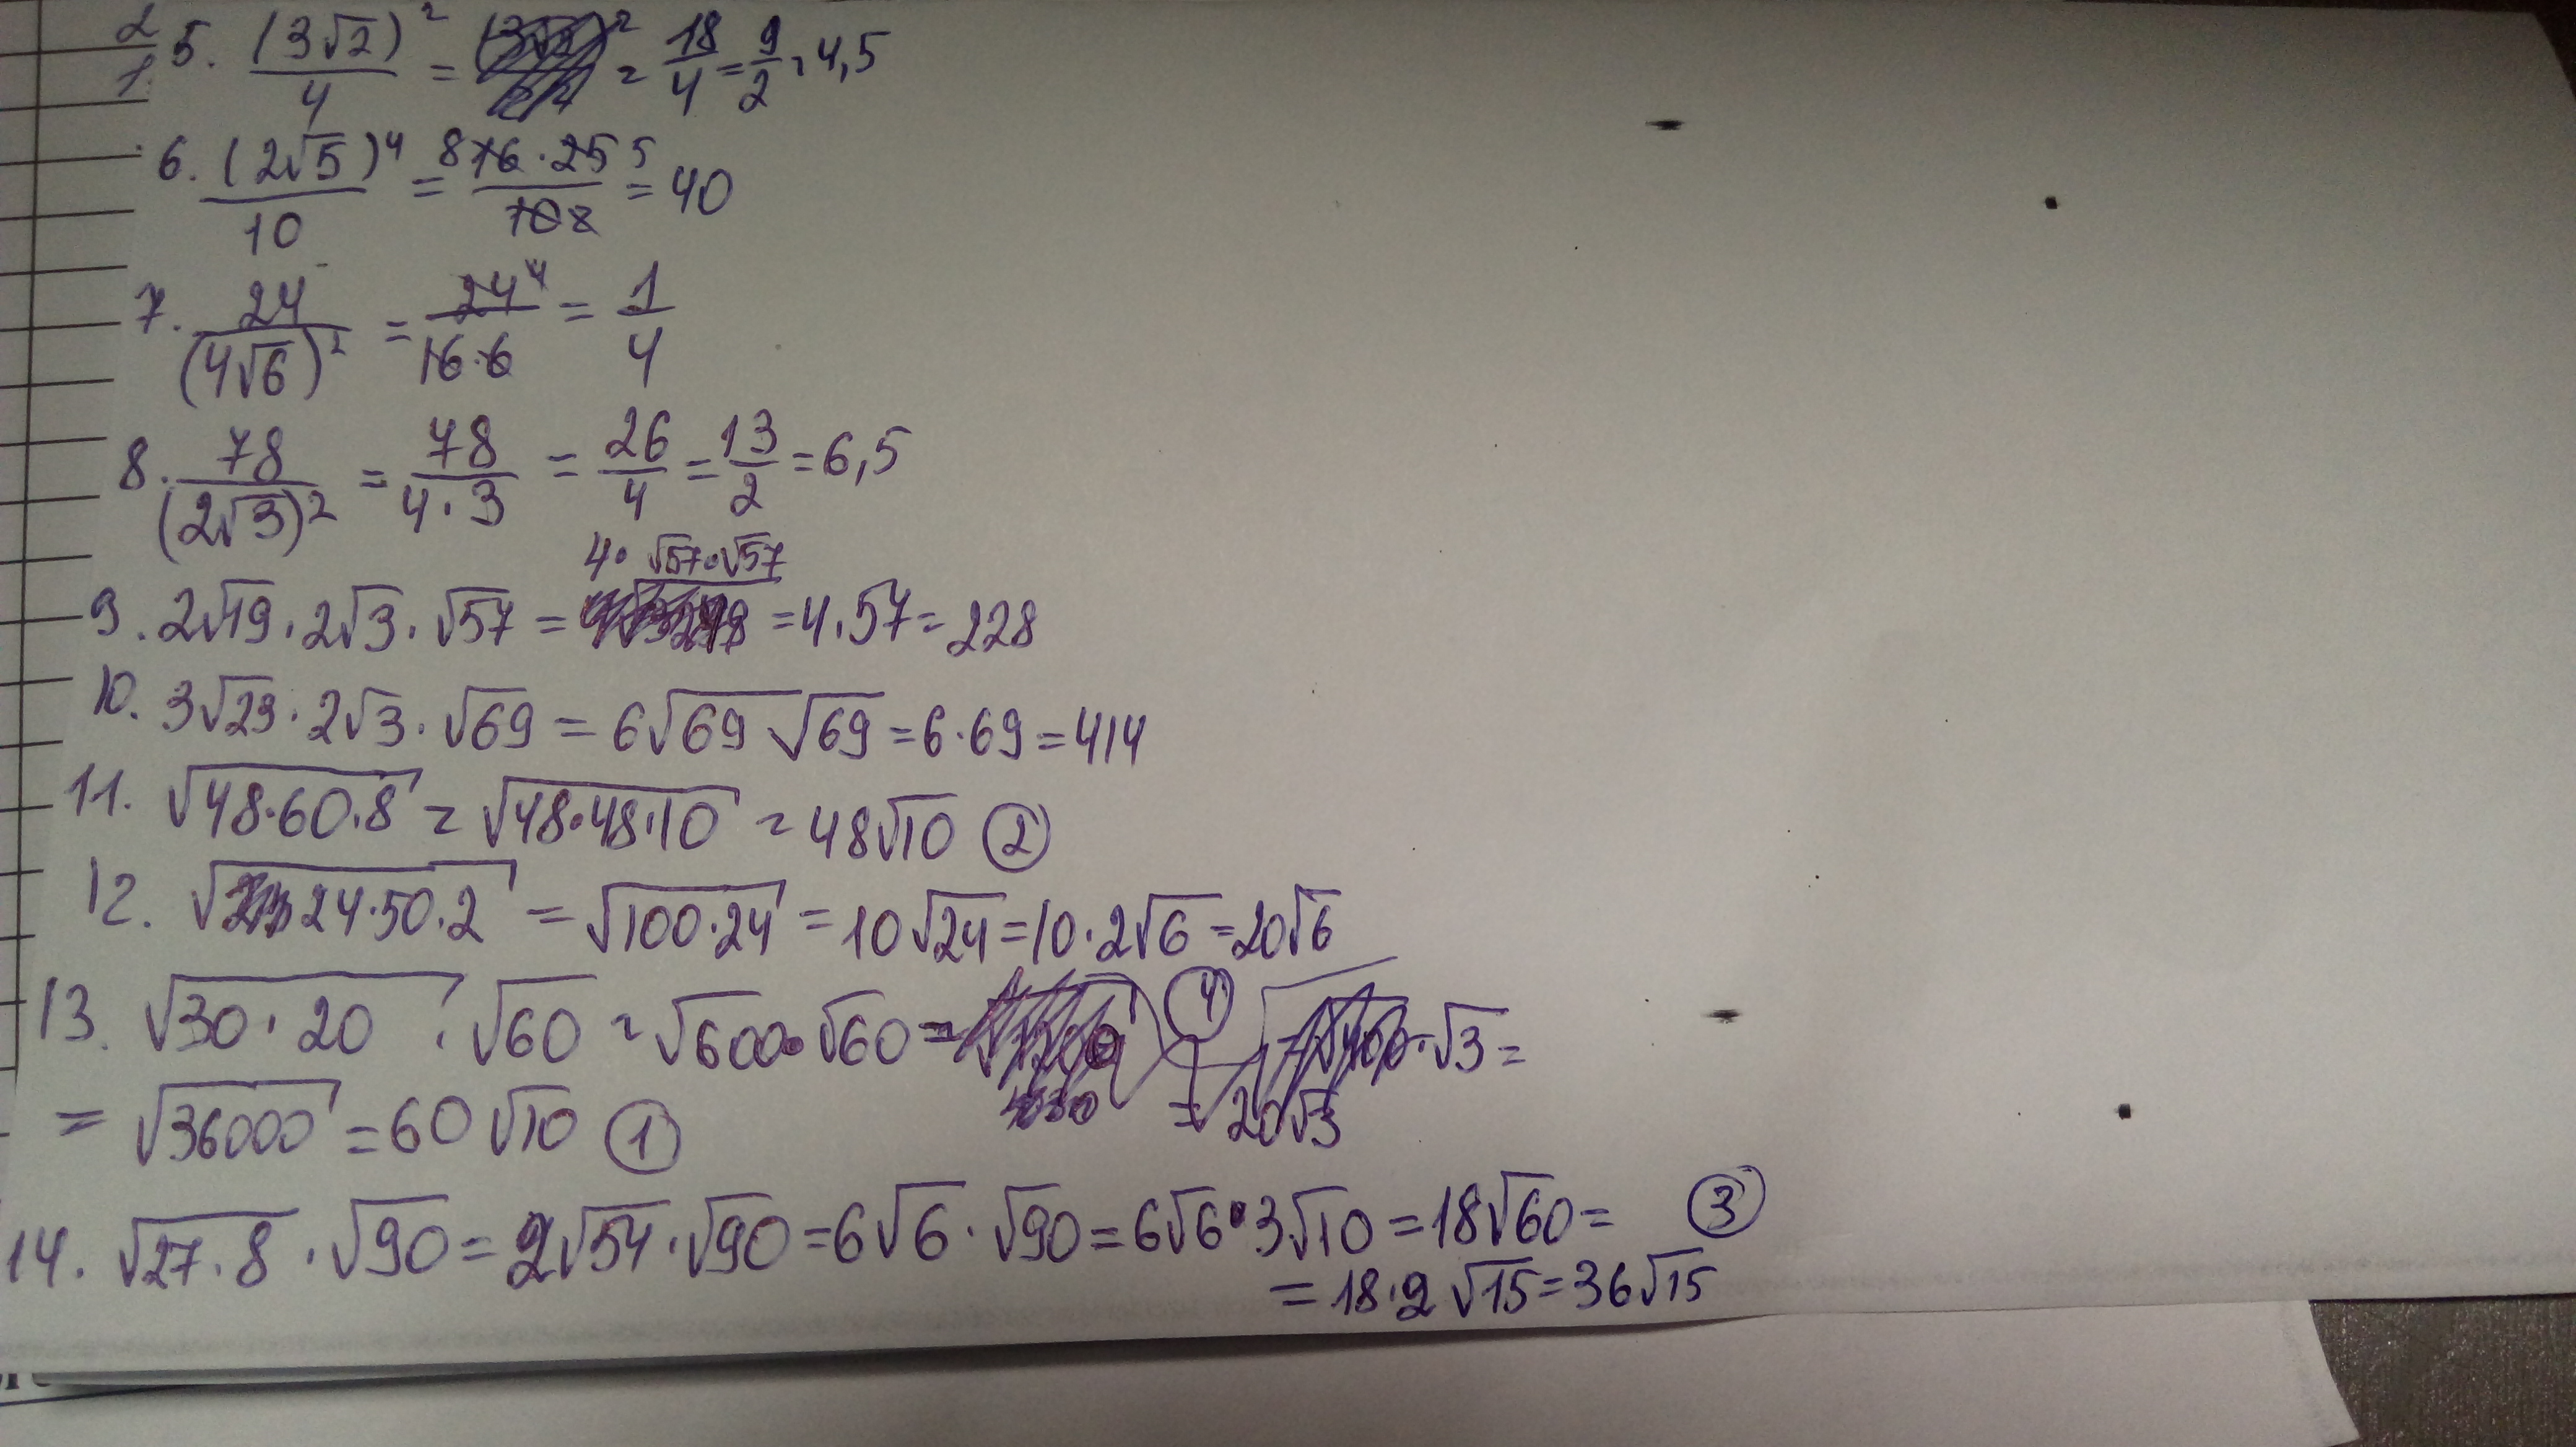 2
1. 5. (3√2)² / 4 = = 18/4 = 9/2 = 4,5
6. (2√5)⁴ / 10 = 8 16 · 25 5 / 10 2 = 40
7. 24 / (4√6)² = 24 4 / 16·6 = 1/4
8. 78 / (2√3)² = 78 / 4·3 = 26/4 = 13/2 = 6,5
9. 2√19 · 2√3 · √57 = 4·√57·√57 = 4·57 = 228
10. 3√23 · 2√3 · √69 = 6√69 √69 = 6·69 = 414
11. √48·60·8 = √48·48·10 = 48√10 (2)
12. √24·50·2 = √100·24 = 10√24 = 10·2√6 = 20√6
(4)
13. √30·20 · √60 = √600·√60 = ·√3 =
= 20√3
= √36000 = 60√10 (1)
14. √27·8 · √90 = 2√54·√90 = 6√6·√90 = 6√6·3√10 = 18√60 = (3)
= 18·2√15 = 36√15